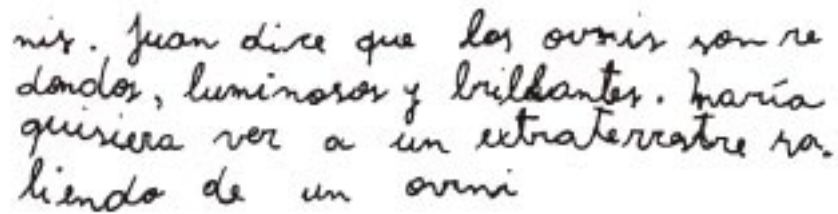 nis. Juan dice que los ovnis son re
dondos, luminosos y brillantes. María
quisiera ver a un extraterrestre sa.
liendo de un ovni